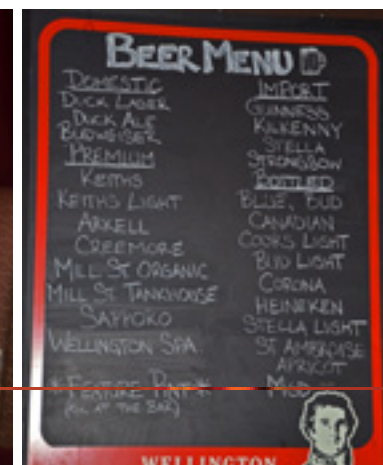 BEER MENU
DOMESTIC
DUCK LAGER
DUCK ALE
BUDWEISER
PREMIUM
KEITHS
KEITHS LIGHT
ARKELL
CREEMORE
MILL ST ORGANIC
MILL ST TANKHOUSE
SAPPORO
WELLINGTON SPA
* FEATURE PINT *
(ASK AT THE BAR)
IMPORT
GUINNESS
KILKENNY
STELLA
STRONGBOW
BOTTLED
BLUE, BUD
CANADIAN
COORS LIGHT
BUD LIGHT
CORONA
HEINEKEN
STELLA LIGHT
ST AMBROISE
APRICOT
WELLINGTON